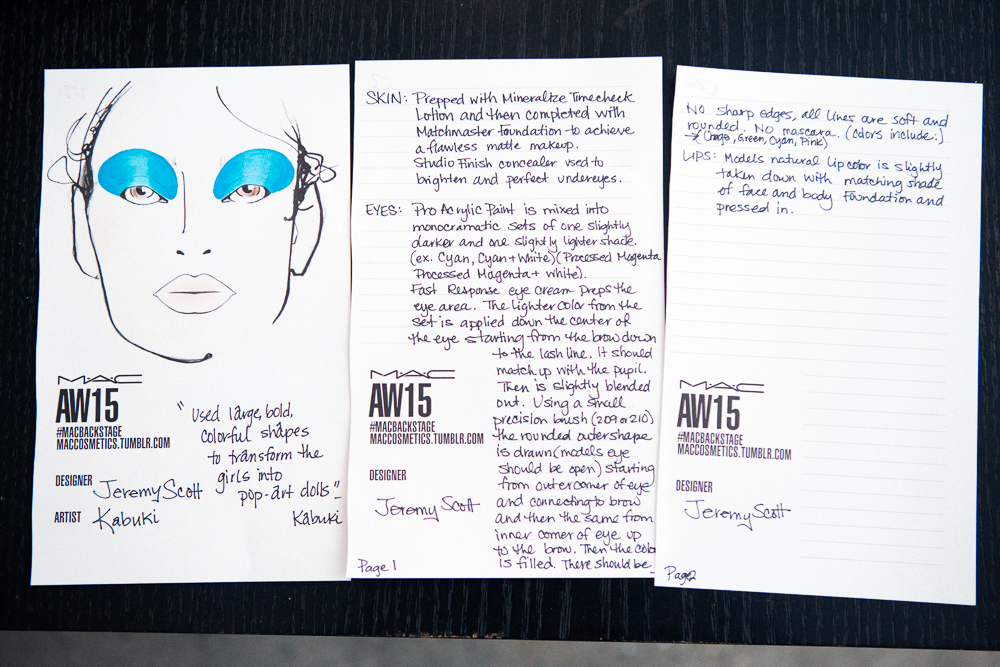 M·A·C
AW15
#MACBACKSTAGE
MACCOSMETICS.TUMBLR.COM
DESIGNER Jeremy Scott
ARTIST Kabuki
"Used large, bold,
colorful shapes
to transform the
girls into
pop-art dolls"-
Kabuki
SKIN: Prepped with Mineralize Timecheck
Lotion and then completed with
Matchmaster Foundation to achieve
a flawless matte makeup.
Studio Finish concealer used to
brighten and perfect undereyes.
EYES: Pro Acrylic Paint is mixed into
monocramatic sets of one slightly
darker and one slightly lighter shade.
(ex. Cyan, Cyan+White)(Processed Magenta
Processed Magenta + White).
Fast Response eye cream preps the
eye area. The lighter color from the
set is applied down the center of
the eye starting from the brow down
to the lash line. It should
match up with the pupil.
Then is slightly blended
out. Using a small
precision brush (209 or 210)
the rounded outer shape
is drawn (models eye
should be open) starting
from outer corner of eye
and connecting to brow
and then the same from
inner corner of eye up
to the brow. Then the color
is filled. There should be
M·A·C
AW15
#MACBACKSTAGE
MACCOSMETICS.TUMBLR.COM
DESIGNER
Jeremy Scott
Page 1
No sharp edges, all lines are soft and
rounded. No mascara. (colors include:)
→ Green, Cyan, Pink)
LIPS: Models natural lip color is slightly
taken down with matching shade
of face and body foundation and
pressed in.
M·A·C
AW15
#MACBACKSTAGE
MACCOSMETICS.TUMBLR.COM
DESIGNER
Jeremy Scott
Page 2